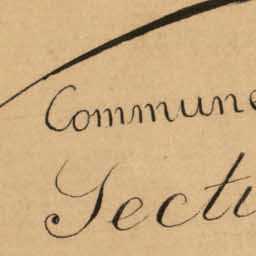 Commune
Secti